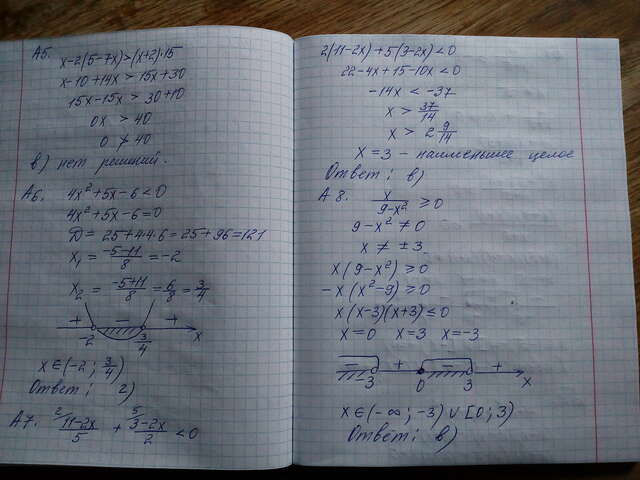 А5. x-2(5-7x)>(x+2)·15
x-10+14x > 15x+30
15x-15x > 30+10
0x > 40
0 ≯ 40
в) нет решений.
А6. 4x²+5x-6<0
4x²+5x-6=0
D = 25+4·4·6=25+96=121
x₁ = (-5-11)/8 = -2
x₂ = (-5+11)/8 = 6/8 = 3/4
+ - +
-2 3/4 x
x∈(-2; 3/4)
Ответ: г)
А7. ²⁄ (11-2x)/5 + ⁵⁄ (3-2x)/2 < 0
2(11-2x)+5(3-2x)<0
22-4x+15-10x<0
-14x < -37
x > 37/14
x > 2 9/14
x = 3 - наименьшее целое
Ответ: в)
А8. x/(9-x²) ≥ 0
9-x² ≠ 0
x ≠ ±3
x(9-x²) ≥ 0
-x(x²-9) ≥ 0
x(x-3)(x+3) ≤ 0
x=0 x=3 x=-3
- + - +
-3 0 3 x
x∈(-∞; -3) ∪ [0; 3)
Ответ: в)